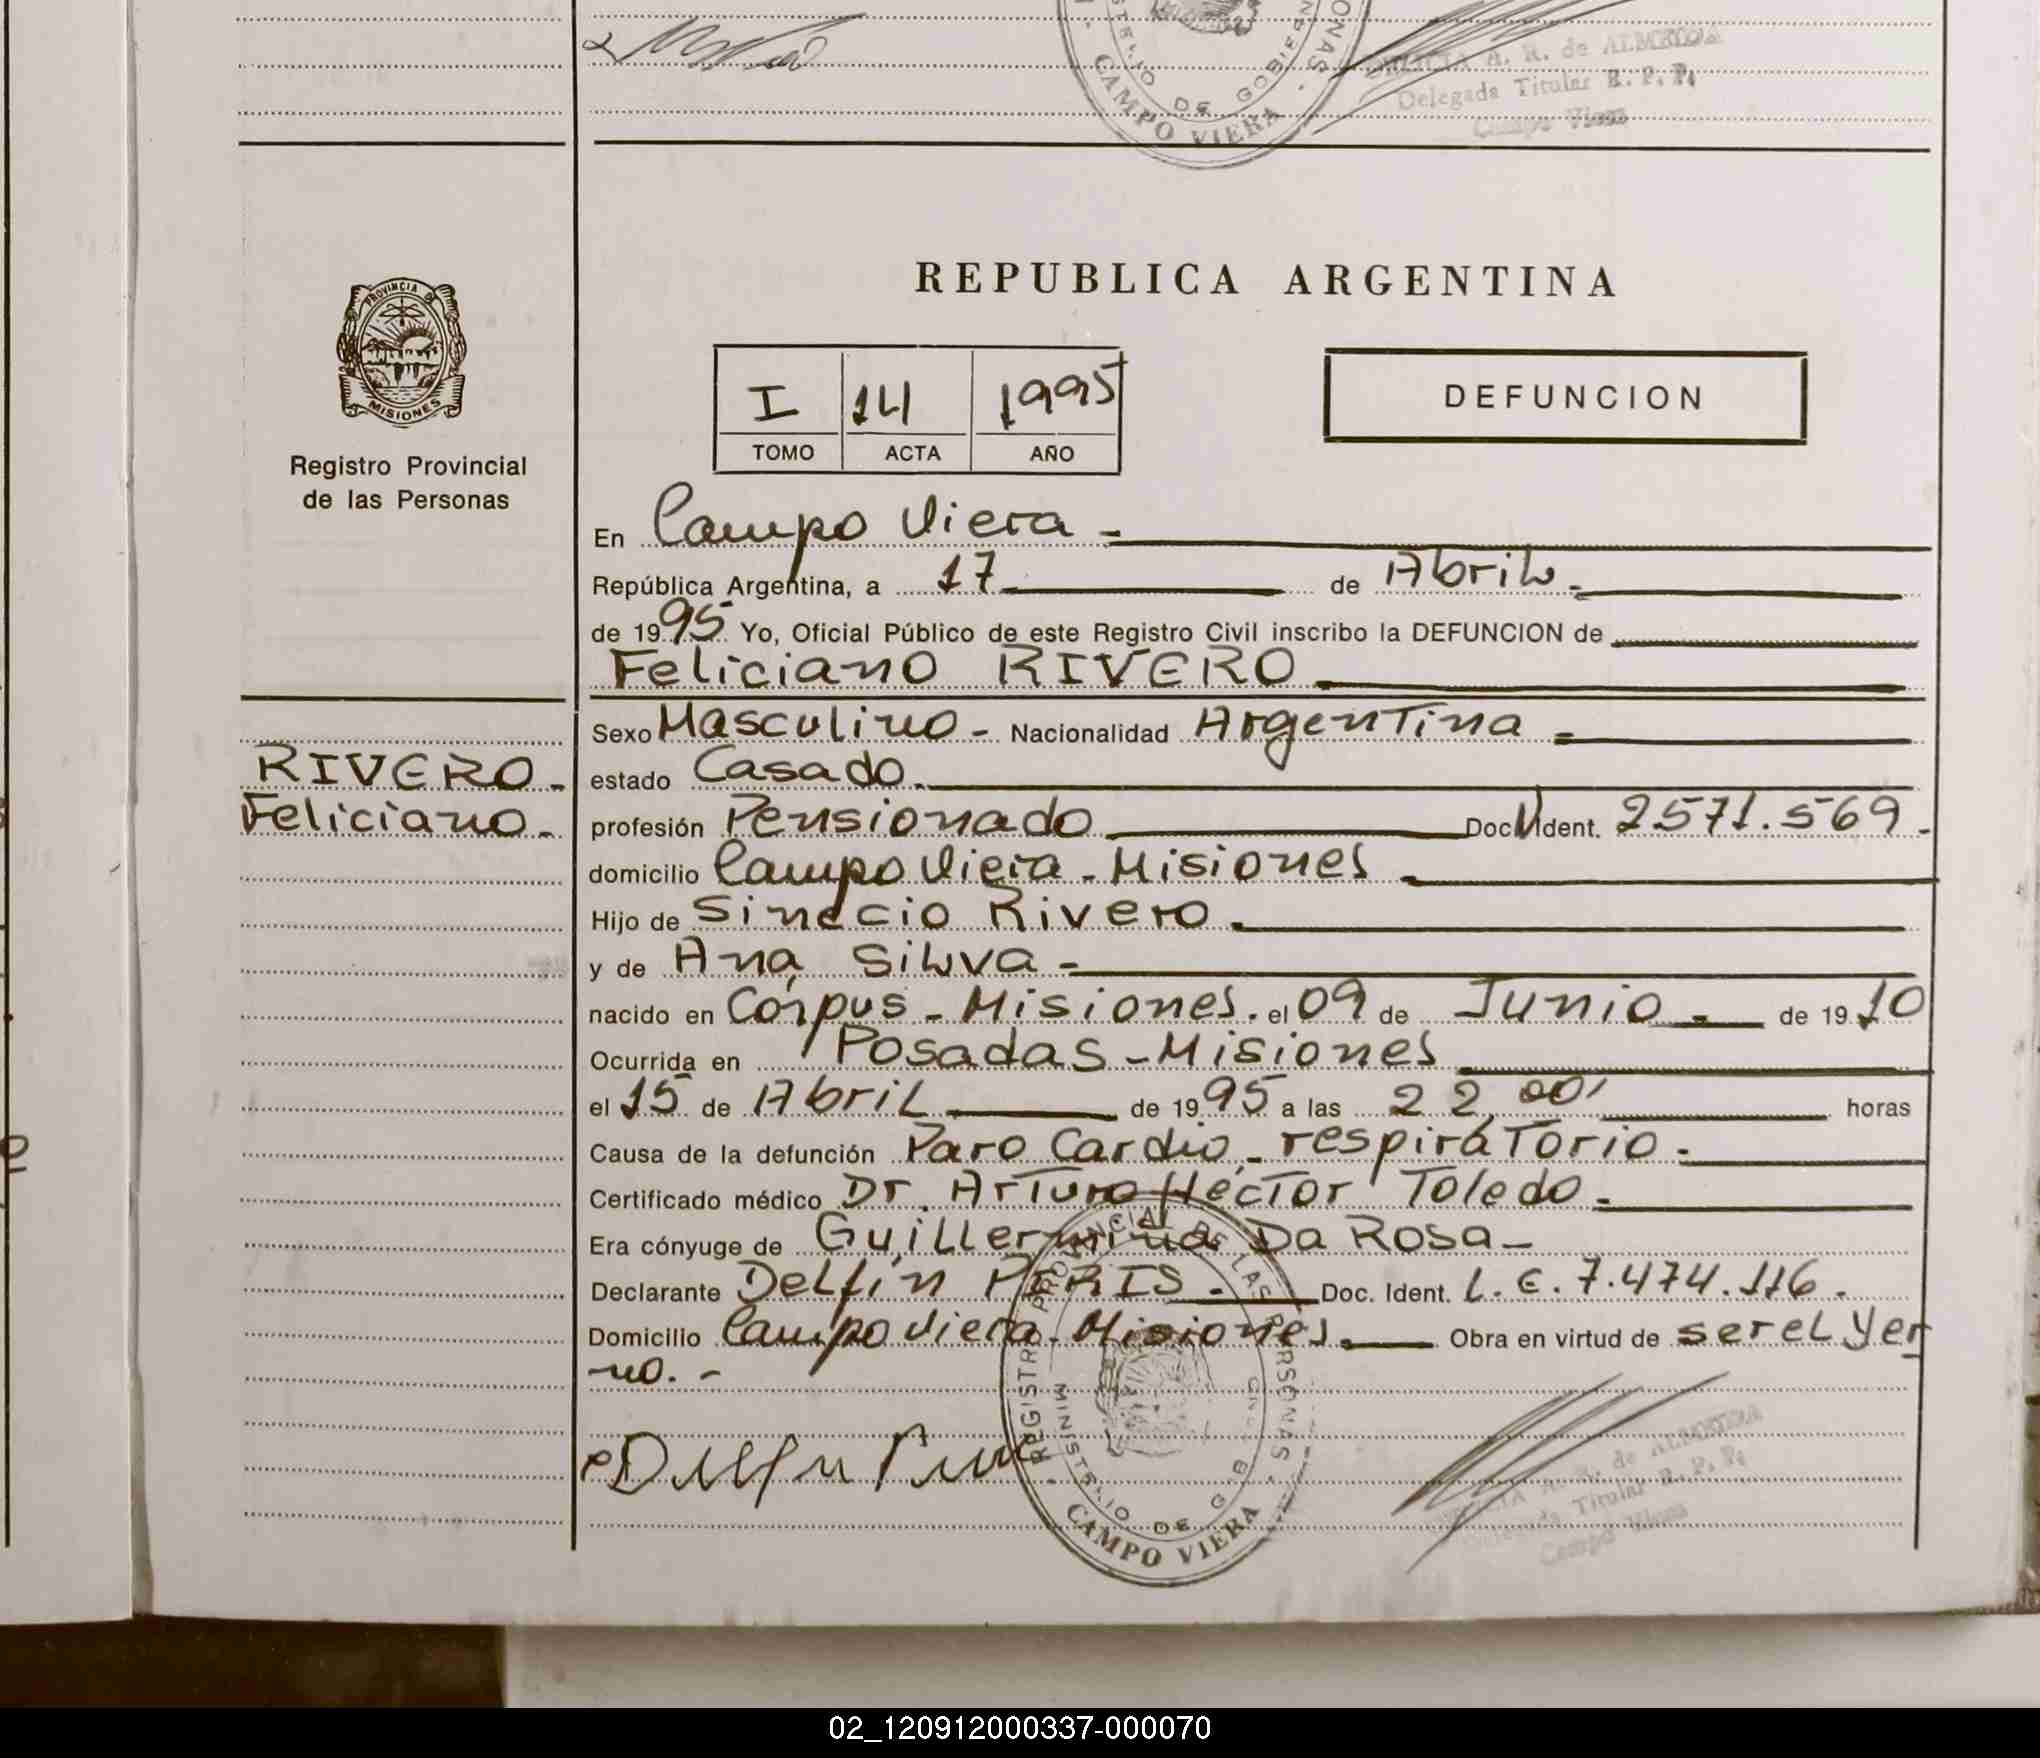 MINISTERIO DE GOBIERNO
CAMPO VIERA
A. R. de ALMEYDA
Delegada Titular R. P. P.
Campo Viera
PROVINCIA DE
MISIONES
Registro Provincial
de las Personas
REPUBLICA ARGENTINA
I 14 1995
TOMO ACTA AÑO
DEFUNCION
En Campo Viera -
República Argentina, a 17 de Abril -
de 1995 Yo, Oficial Público de este Registro Civil inscribo la DEFUNCION de
Feliciano RIVERO
RIVERO -
Feliciano -
Sexo Masculino - Nacionalidad Argentina -
estado Casado.
profesión Pensionado Doc. Ident. 2571.569 -
domicilio Campo Viera - Misiones
Hijo de Sinecio Rivero.
y de Ana Silva -
nacido en Corpus - Misiones. el 09 de Junio - de 1910
Ocurrida en Posadas - Misiones
el 15 de Abril de 1995 a las 22,00' horas
Causa de la defunción Paro Cardio - respiratorio -
Certificado médico Dr. Arturo Héctor Toledo -
Era cónyuge de Guillermina Da Rosa -
Declarante Delfín PERIS - Doc. Ident. L. E. 7.474.116.
Domicilio Campo Viera - Misiones. Obra en virtud de ser el Yer
no. -
REGISTRO PROVINCIAL DE LAS PERSONAS
MINISTERIO DE
CAMPO VIERA
A. R. de ALMEYDA
Delegada Titular R. P. P.
Campo Viera
02_120912000337-000070